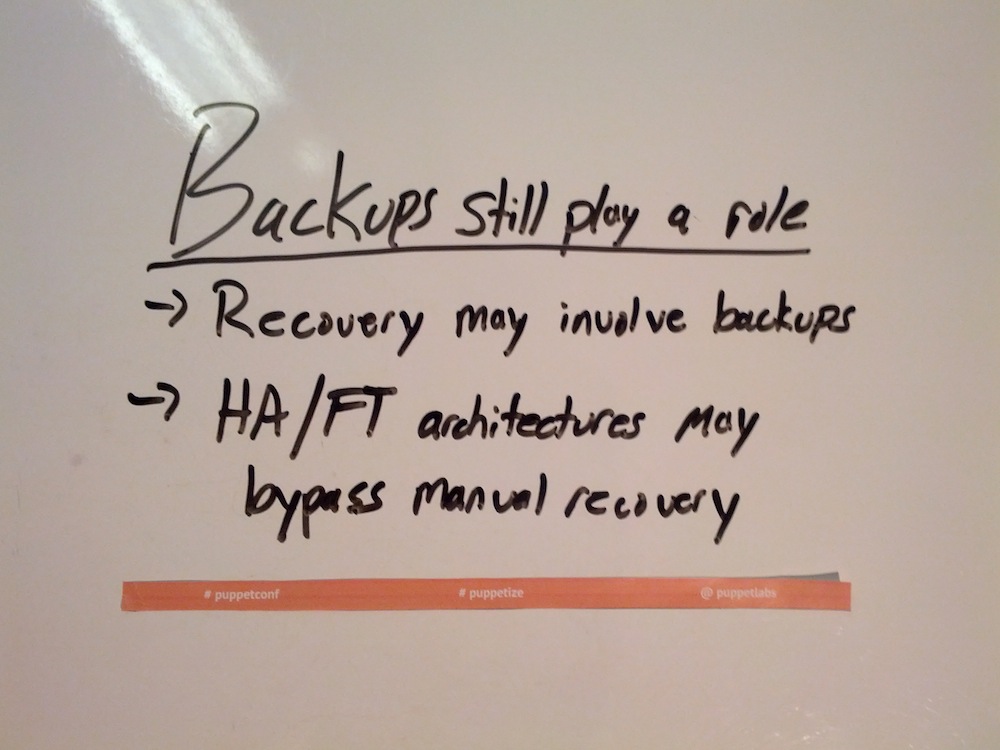 Backups still play a role
-> Recovery may involve backups
-> HA/FT architectures may
bypass manual recovery
# puppetconf # puppetize @ puppetlabs